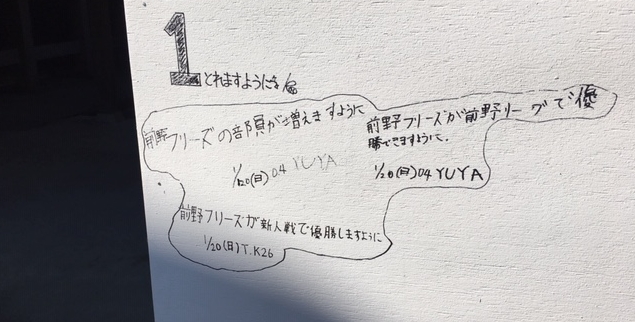 1とれますように
前野フリーズの部員が増えますように
1/20(日)04 YUYA
前野フリーズが前野リーグで優
勝できますように、
1/20(日)04 YUYA
前野フリーズが新人戦で優勝しますように
1/20(日)T.K26